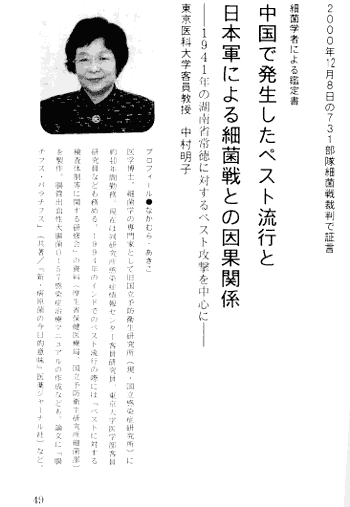 2000年12月8日の731部隊細菌戦裁判で証言
細菌学者による鑑定書
中国で発生したペスト流行と
日本軍による細菌戦との因果関係
――1941年の湖南省常徳に対するペスト攻撃を中心に――
東京医科大学客員教授 中村明子
プロフィール●なかむら・あきこ
医学博士。細菌学の専門家として旧国立予防衛生研究所(現・国立感染症研究所)に
約40年間勤務。現在は同研究所感染症情報センター客員研究員、東京大学医学部客員
研究員なども務める。1994年のインドでのペスト流行の際には「ペストに対する
検査体制等に関する研修会」の資料(厚生省保健医療局、国立予防衛生研究所細菌部)
を製作。腸管出血性大腸菌O157感染症治療マニュアルの作成なども。論文に「腸
チフス・パラチフス」(共著)/「新・病原菌の今日的意味」医薬ジャーナル社)など。
49